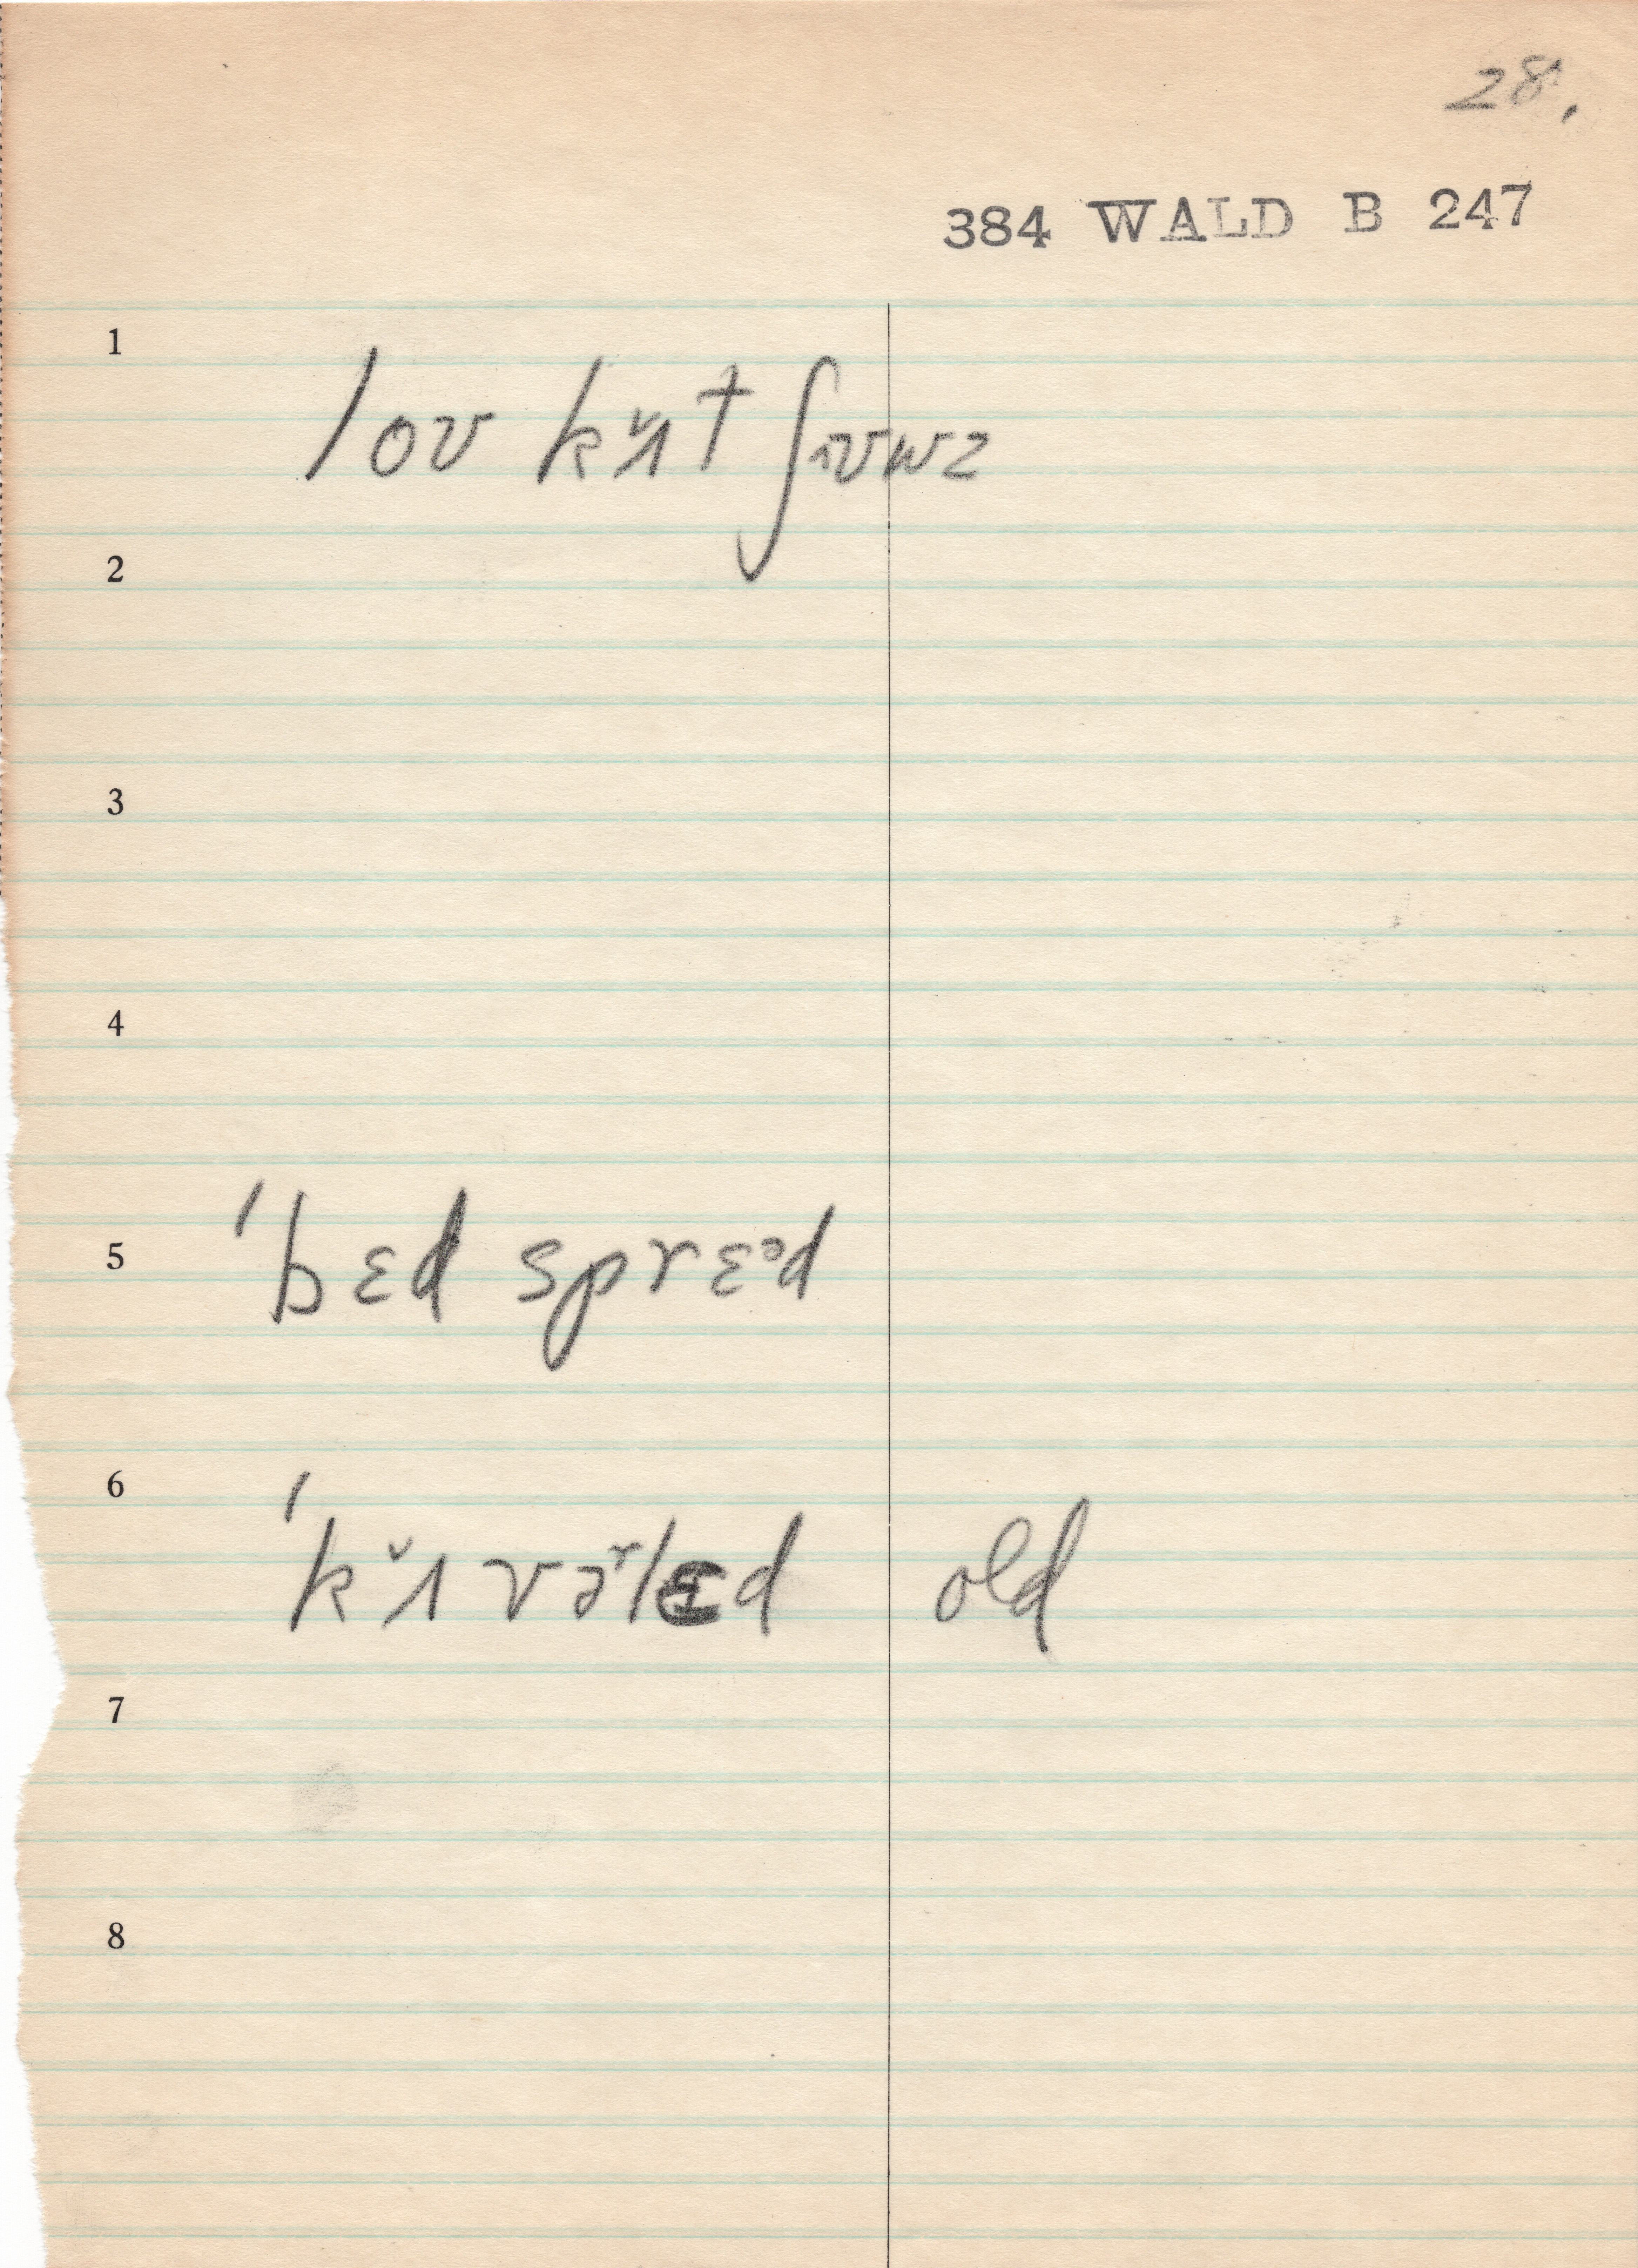 28.
384 WALD B 247
1
loʊ kˇʌt ʃɪʊwz
2
3
4
5 ˈbɛd sprɛᵊd
6 ˈkˇʌvəʳlɛd old
7
8